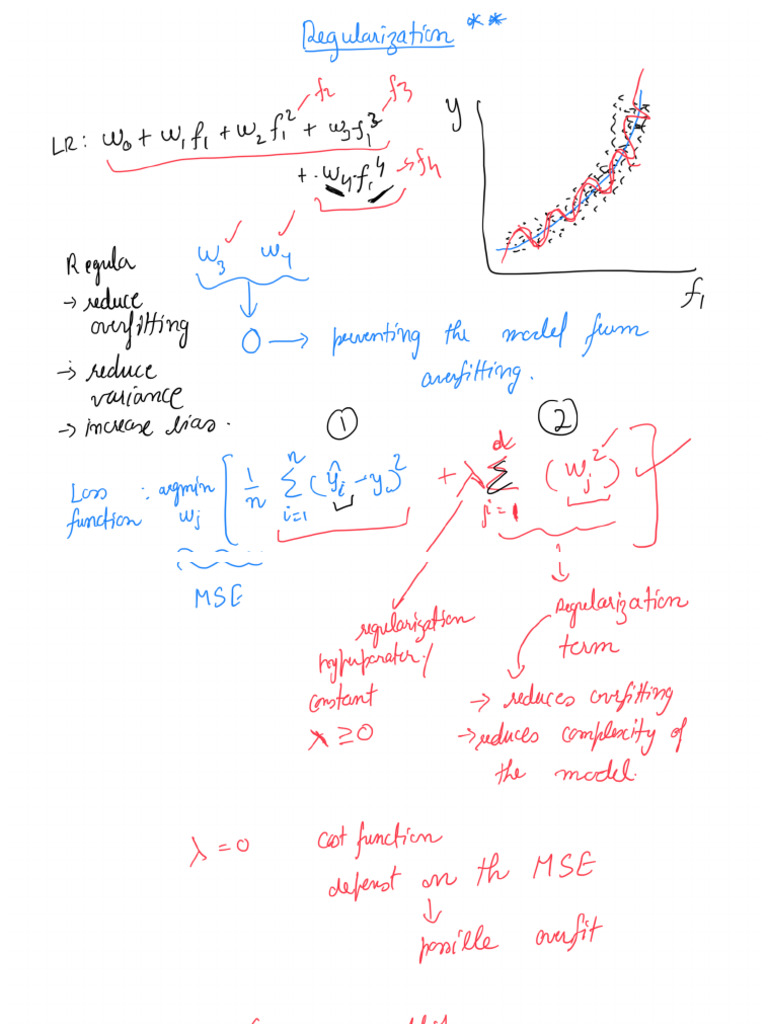 Regularization **
LR: w₀ + w₁f₁ + w₂f₁² + w₃.f₁³
f2
f3
+ .w₄.f₁⁴ → f4
y
f₁
w₃ w₄
Regula
→ reduce
overfitting
→ reduce
variance
→ increase bias.
0 → preventing the model from
overfitting.
① ②
Loss function : argmin wj [ 1/n Σ i=1 n (ŷi - yi)² + λ Σ j=1 d (wj²) ]
MSE
regularization
hyperparater/
constant
λ ≥ 0
Regularization
term
→ reduces overfitting
→ reduces complexity of
the model.
λ = 0 cost function
depenst on th MSE
↓
possible overfit